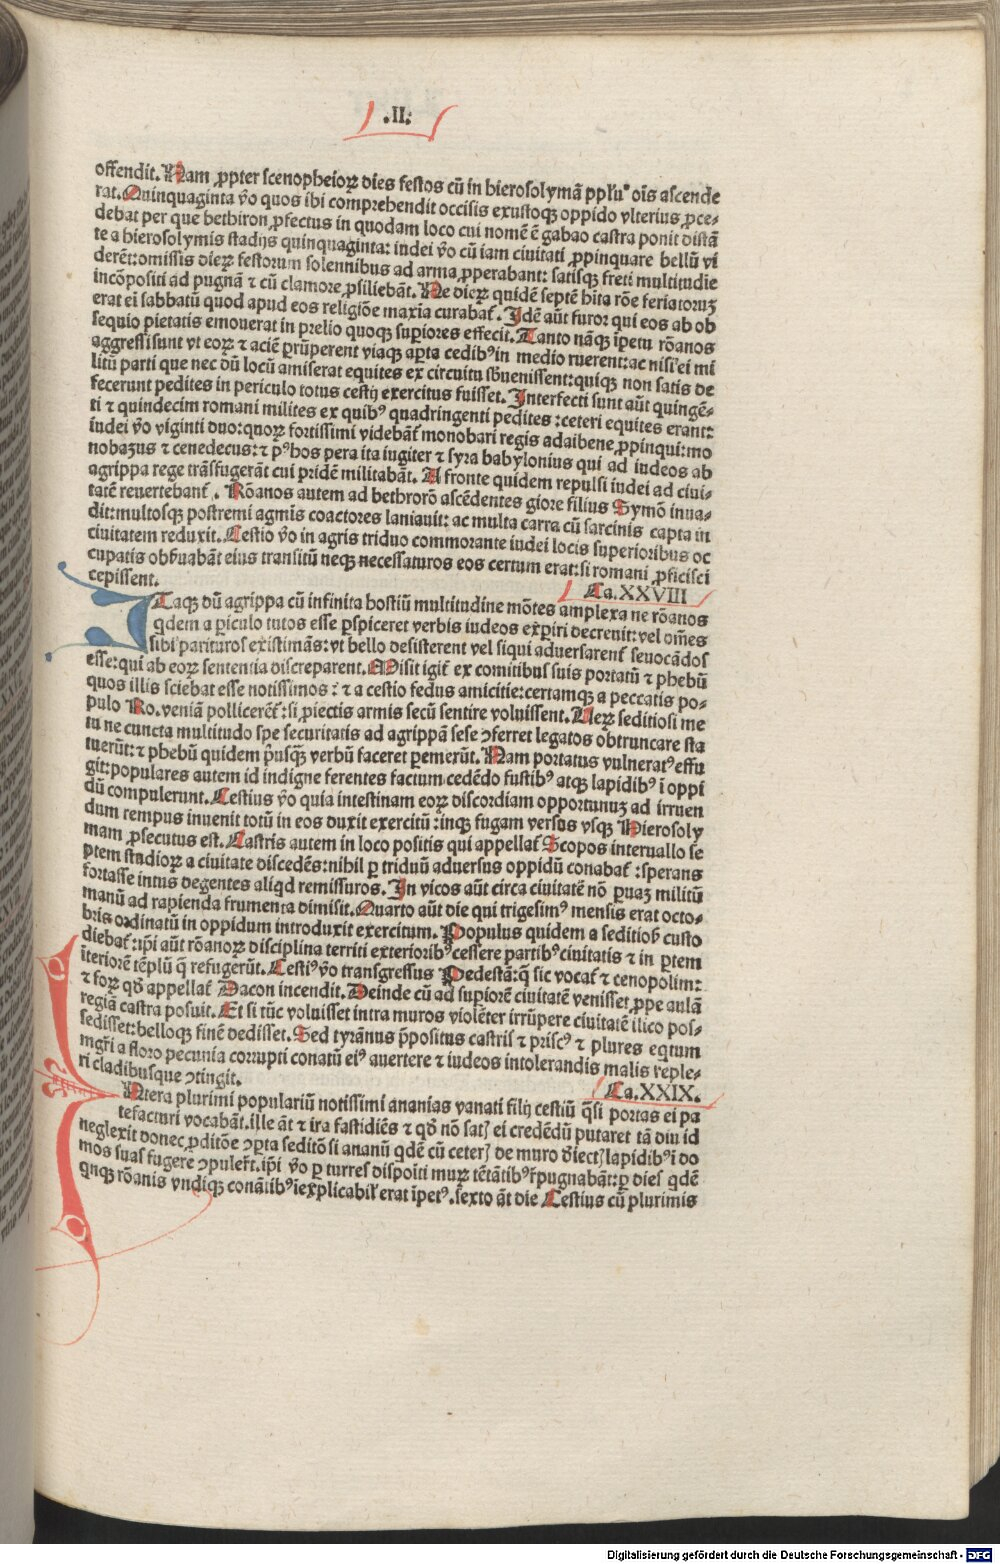 .II.
offendit. Nam ꝓpter scenopheioꝝ dies festos cū in hierosolymā ppłu᷒ oīs ascende
rat. Quinquaginta v̄o quos ibi comprehendit occisis exustoqꝫ oppido vlterius ꝓce⸗
debat per que bethiron ꝓfectus in quodam loco cui nomē ē gabao castra ponit distā
te a hierosolymis stadijs quinquaginta: iudei v̄o cū iam ciuitati ꝓpinquare bellū vi
derēt: omissis dieꝝ festorum solennibus ad arma ꝓperabant: satisqꝫ freti multitudie
incōpositi ad pugnā ⁊ cū clamore ꝓsiliebāt. Ne dieꝝ quidē septē hīta rōe feriatorum
erat eī sabbatū quod apud eos religiōe maxīa curabat᷑. Idē aūt furor qui eos ab ob
sequio pietatis emouerat in prelio quoqꝫ suꝑiores effecit. Tanto nāqꝫ īpetu rōanos
aggressi sunt vt eoꝝ ⁊ aciē ꝑrūperent viaqꝫ aꝑta cedib᷒ in medio ruerent: ac nisi ei mi
litū parti que nec dū locū amiserat equites ex circuitu sb̄uenissent: quiqꝫ non satis de
fecerunt pedites in periculo totus cestij exercitus fuisset. Interfecti sunt aūt quingē⸗
ti ⁊ quindecim romani milites ex quib᷒ quadringenti pedites: ceteri equites erant:
iudei v̄o viginti duo: quoꝝ fortissimi videbāt᷑ monobari regis adaibene ꝓpinqui: mo
nobazus ⁊ cenedecus: ⁊ p᷒ hos pera ita iugiter ⁊ syra babylonius qui ad iudeos ab
agrippa rege trāsfugerāt cui pridē militabāt. A fronte quidem repulsi iudei ad ciui⸗
tatē reuertebant᷑. Rōanos autem ad bethrorō ascēdentes giore filius Symō inua⸗
dit: multosqꝫ postremi agmīs coactores laniauit: ac multa carra cū sarcinis capta in
ciuitatem reduxit. Cestio v̄o in agris triduo commorante iudei locis superioribus oc
cupatis obb̄uabāt eius transitū neqꝫ necessaturos eos certum erat: si romani ꝓficisci
cepissent.
Ca.XXVIII
ITaqꝫ dū agrippa cū infinita hostiū multitudine mōtes amplexa ne rōanos
qdem a ꝑiculo tutos esse ꝑspiceret verbis iudeos exꝑiri decreuit: vel om̄es
sibi parituros existimās: vt bello desisterent vel siqui aduersarent᷑ seuocādos
esse: qui ab eoꝝ sententia discreparent. Misit igit᷑ ex comitibus suis portatū ⁊ phebū
quos illis sciebat esse notissimos: ⁊ a cestio fedus amicitie: certamqꝫ a peccatis po⸗
pulo Ro. veniā pollicerēt᷑: si ꝓiectis armis secū sentire voluissent. Veꝝ seditiosi me
tu ne cuncta multitudo spe securitatis ad agrippā sese ꝯferret legatos obtruncare sta
tuerūt: ⁊ phebū quidem pͥusqꝫ̄ verbū faceret ꝑemerūt. Nam portatus vulnerat᷒ effu
git: populares autem id indigne ferentes factum cedēdo fustib᷒ atqꝫ lapidib᷒ ī oppi
dū compulerunt. Cestius v̄o quia intestinam eoꝝ discordiam opportunuꝫ ad irruen
dum tempus inuenit totū in eos duxit exercitū: inqꝫ fugam versos vsqꝫ Hierosoly
mam ꝓsecutus est. Castris autem in loco positis qui appellat᷑ Scopos interuallo se
ptem stadioꝝ a ciuitate discedēs: nihil ꝑ triduū aduersus oppidū conabat᷑: sperans
fortasse intus degentes aliqd remissuros. In vicos aūt circa ciuitatē nō ꝑuaꝫ militū
manū ad rapienda frumenta dimisit. Quarto aūt die qui trigesim᷒ mensis erat octo⸗
bris ordinatū in oppidum introduxit exercitum. Populus quidem a seditiosꝭ custo
diebat᷑: ip̄i aūt rōanoꝝ disciplina territi exteriorib᷒ cessere partib᷒ ciuitatis ⁊ in ꝑtem
īteriorē tēplū q̄ refugerūt. Cesti᷒ v̄o transgressus Pedestā: q̄ sic vocat᷑ ⁊ cenopolim:
⁊ foꝝ qd̄ appellat᷑ Dacon incendit. Deinde cū ad suꝑiorē ciuitatē venisset ꝓpe aulā
regiā castra posuit. Et si tūc voluisset intra muros violēter irrūpere ciuitatē ilico pos⸗
sedisset: belloqꝫ finē dedisset. Sed tyrānus p̄positus castris ⁊ prisc᷒ ⁊ plures eqtum
mgr̄i a floro pecunia corrupti conatū ei᷒ auertere ⁊ iudeos intolerandis malis reple⸗
ri cladibusque ꝯtingit.
Ca.XXIX.
INtera plurimi populariū notissimi ananias vanati filij cestiū q̄si portas ei pa
tefacturi vocabāt. ille āt ⁊ ira fastidiēs ⁊ qd̄ nō satꝭ ei credēdū putaret tā diu id
neglexit donec ꝓditōe ꝯꝑta seditō si ananū qdē cū ceterꝭ de muro d̄iectꝭ lapidib᷒ ī do
mos suas fugere ꝯpuler᷑t. ip̄i v̄o ꝑ turres dispoīti muꝝ tētātib᷒ r̄pugnabāt: ꝑ dies qdē
qnqꝫ rōanis vndiqꝫ conātib᷒ īexplicabił erat īpet᷒. sexto āt die Cestius cū plurimis
Digitalisierung gefördert durch die Deutsche Forschungsgemeinschaft - DFG